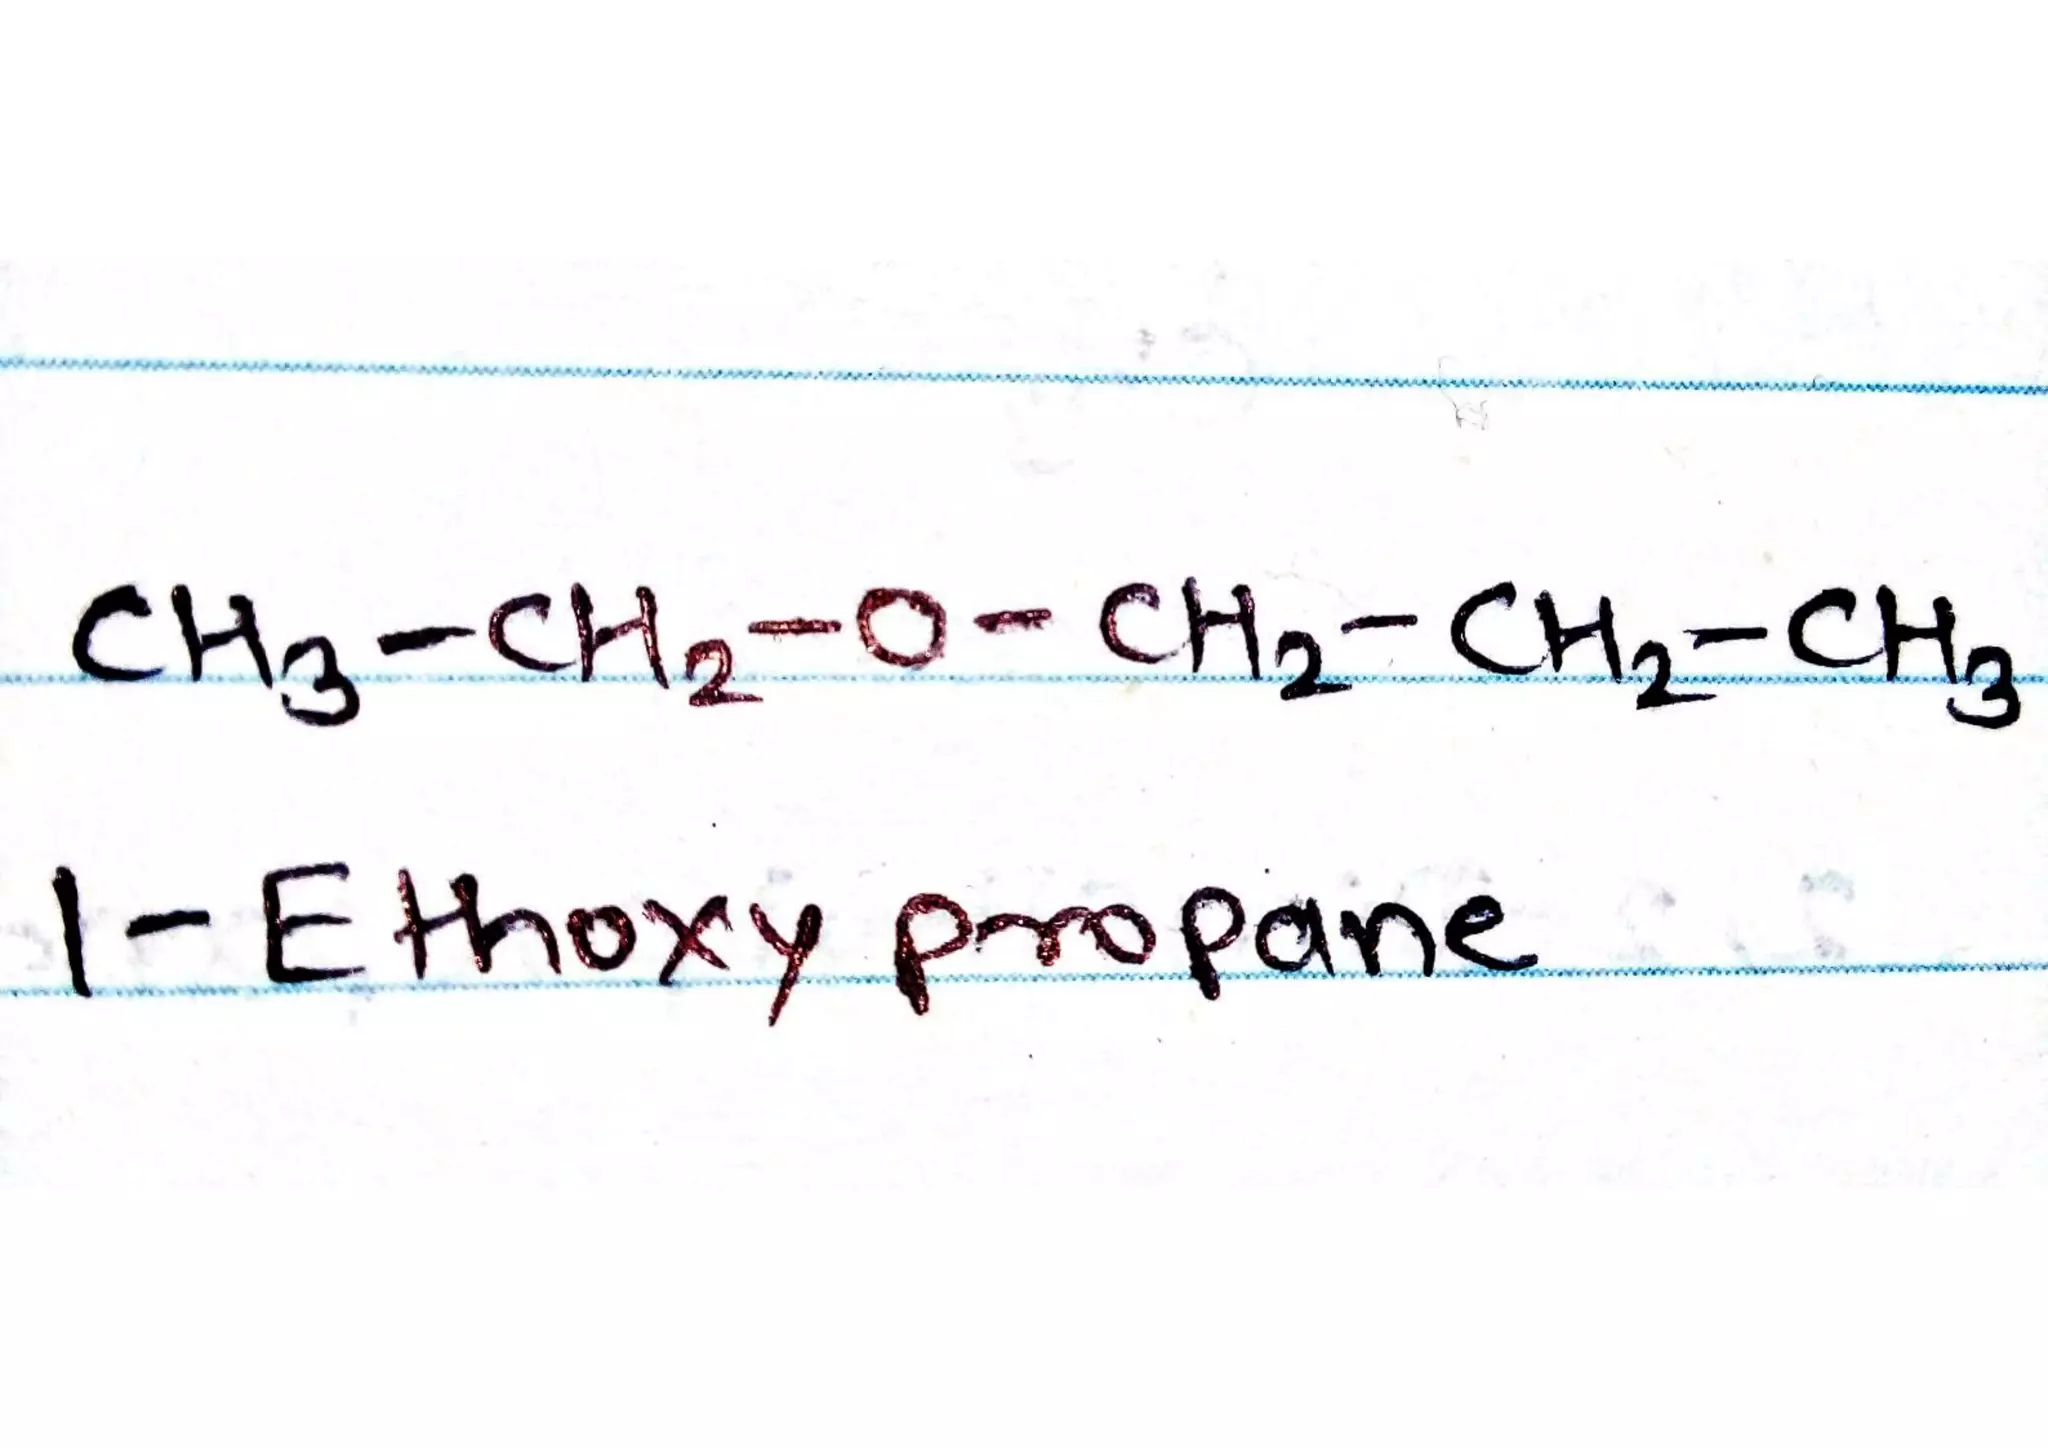 CH₃-CH₂-O-CH₂-CH₂-CH₃
1-Ethoxy propane